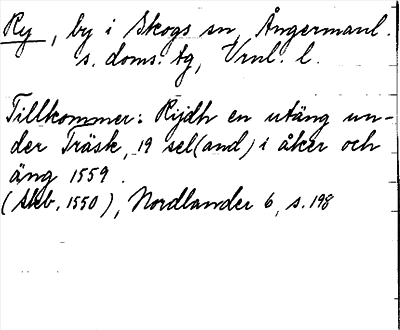 Ry, by i Skogs sn, Ångermanl.
s. doms. tg, Vrnl. l.
Tillkommer: Rijdh en utäng un-
der Träsk, 19 sel(and) i åker och
äng 1559.
(Skb, 1550), Nordlander 6, s. 198